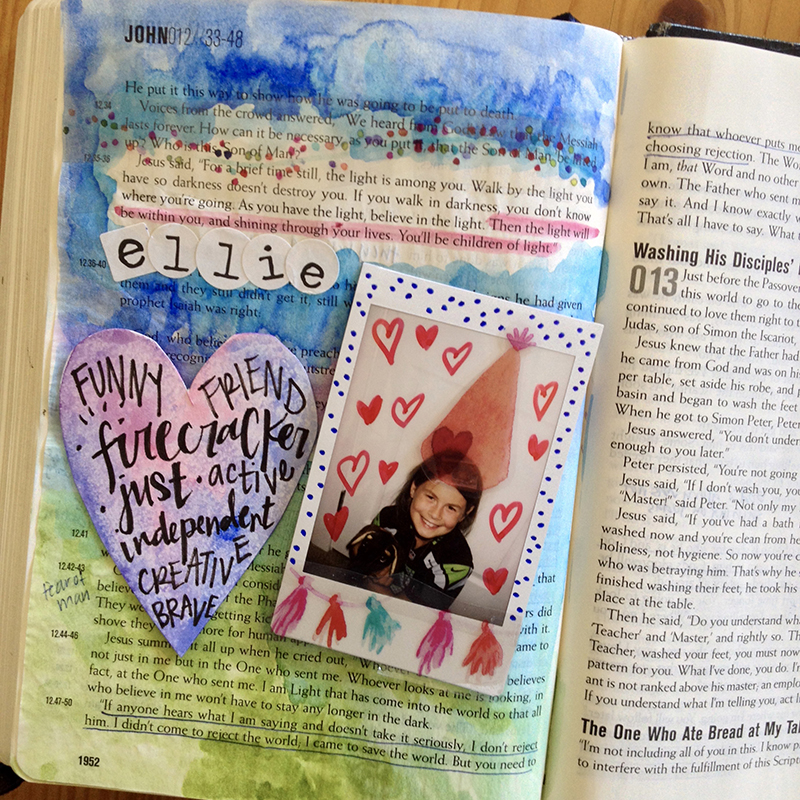 JOHN012//33-48
He put it this way to show how he was going to be put to death.
12.34
Voices from the crowd answered, "We heard from God's Law that the Messiah
lasts forever. How can it be necessary, as you put it, that the Son of Man be lifted
up? Who is this 'Son of Man'?"
12.35-36
Jesus said, "For a brief time still, the light is among you. Walk by the light you
have so darkness doesn't destroy you. If you walk in darkness, you don't know
where you're going. As you have the light, believe in the light. Then the light will
be within you, and shining through your lives. You'll be children of light."
ellie
12.36-40
them and they still didn't get it, still w
he had given
prophet Isaiah was right:
who believe
preach
recogn
FUNNY FRIEND
firecracker
just active
independent
CREATIVE
BRAVE
fear of
man
12.41
he g
12.42-43
Messiah
believ
consid
that
They wo
the Pha
ers did
getting kic
with it.
shove they
more for human
came to
12.44-46
Jesus summ
it all up when he cried out, "Whoever
not just in me but in the One who sent me. Whoever looks at me is looking, in
fact, at the One who sent me. I am Light that has come into the world so that all
who believe in me won't have to stay any longer in the dark.
12.47-50
"If anyone hears what I am saying and doesn't take it seriously, I don't reject
him. I didn't come to reject the world; I came to save the world. But you need to
1952
know that whoever puts me
choosing rejection. The Wo
I am, that Word and no other
own. The Father who sent m
say it. And I know exactly w
That's all I have to say. What t
Washing His Disciples'
013 Just before the Passove
this world to go to the
continued to love them right to t
Judas, son of Simon the Iscariot,
Jesus knew that the Father had
he came from God and was on his
per table, set aside his robe, and p
basin and began to wash the feet
When he got to Simon Peter, Peter
Jesus answered, "You don't under
enough to you later."
Peter persisted, "You're not going
Jesus said, "If I don't wash you, yo
"Master!" said Peter. "Not only my
Jesus said, "If you've had a bath
washed now and you're clean from he
holiness, not hygiene. So now you're c
who was betraying him. That's why he s
finished washing their feet, he took his
place at the table.
Then he said, "Do you understand wha
'Teacher' and 'Master,' and rightly so. Th
Teacher, washed your feet, you must now
pattern for you. What I've done, you do. I'
ant is not ranked above his master; an emplo
If you understand what I'm telling you, act l
The One Who Ate Bread at My Ta
"I'm not including all of you in this. I know p
to interfere with the fulfillment of this Script